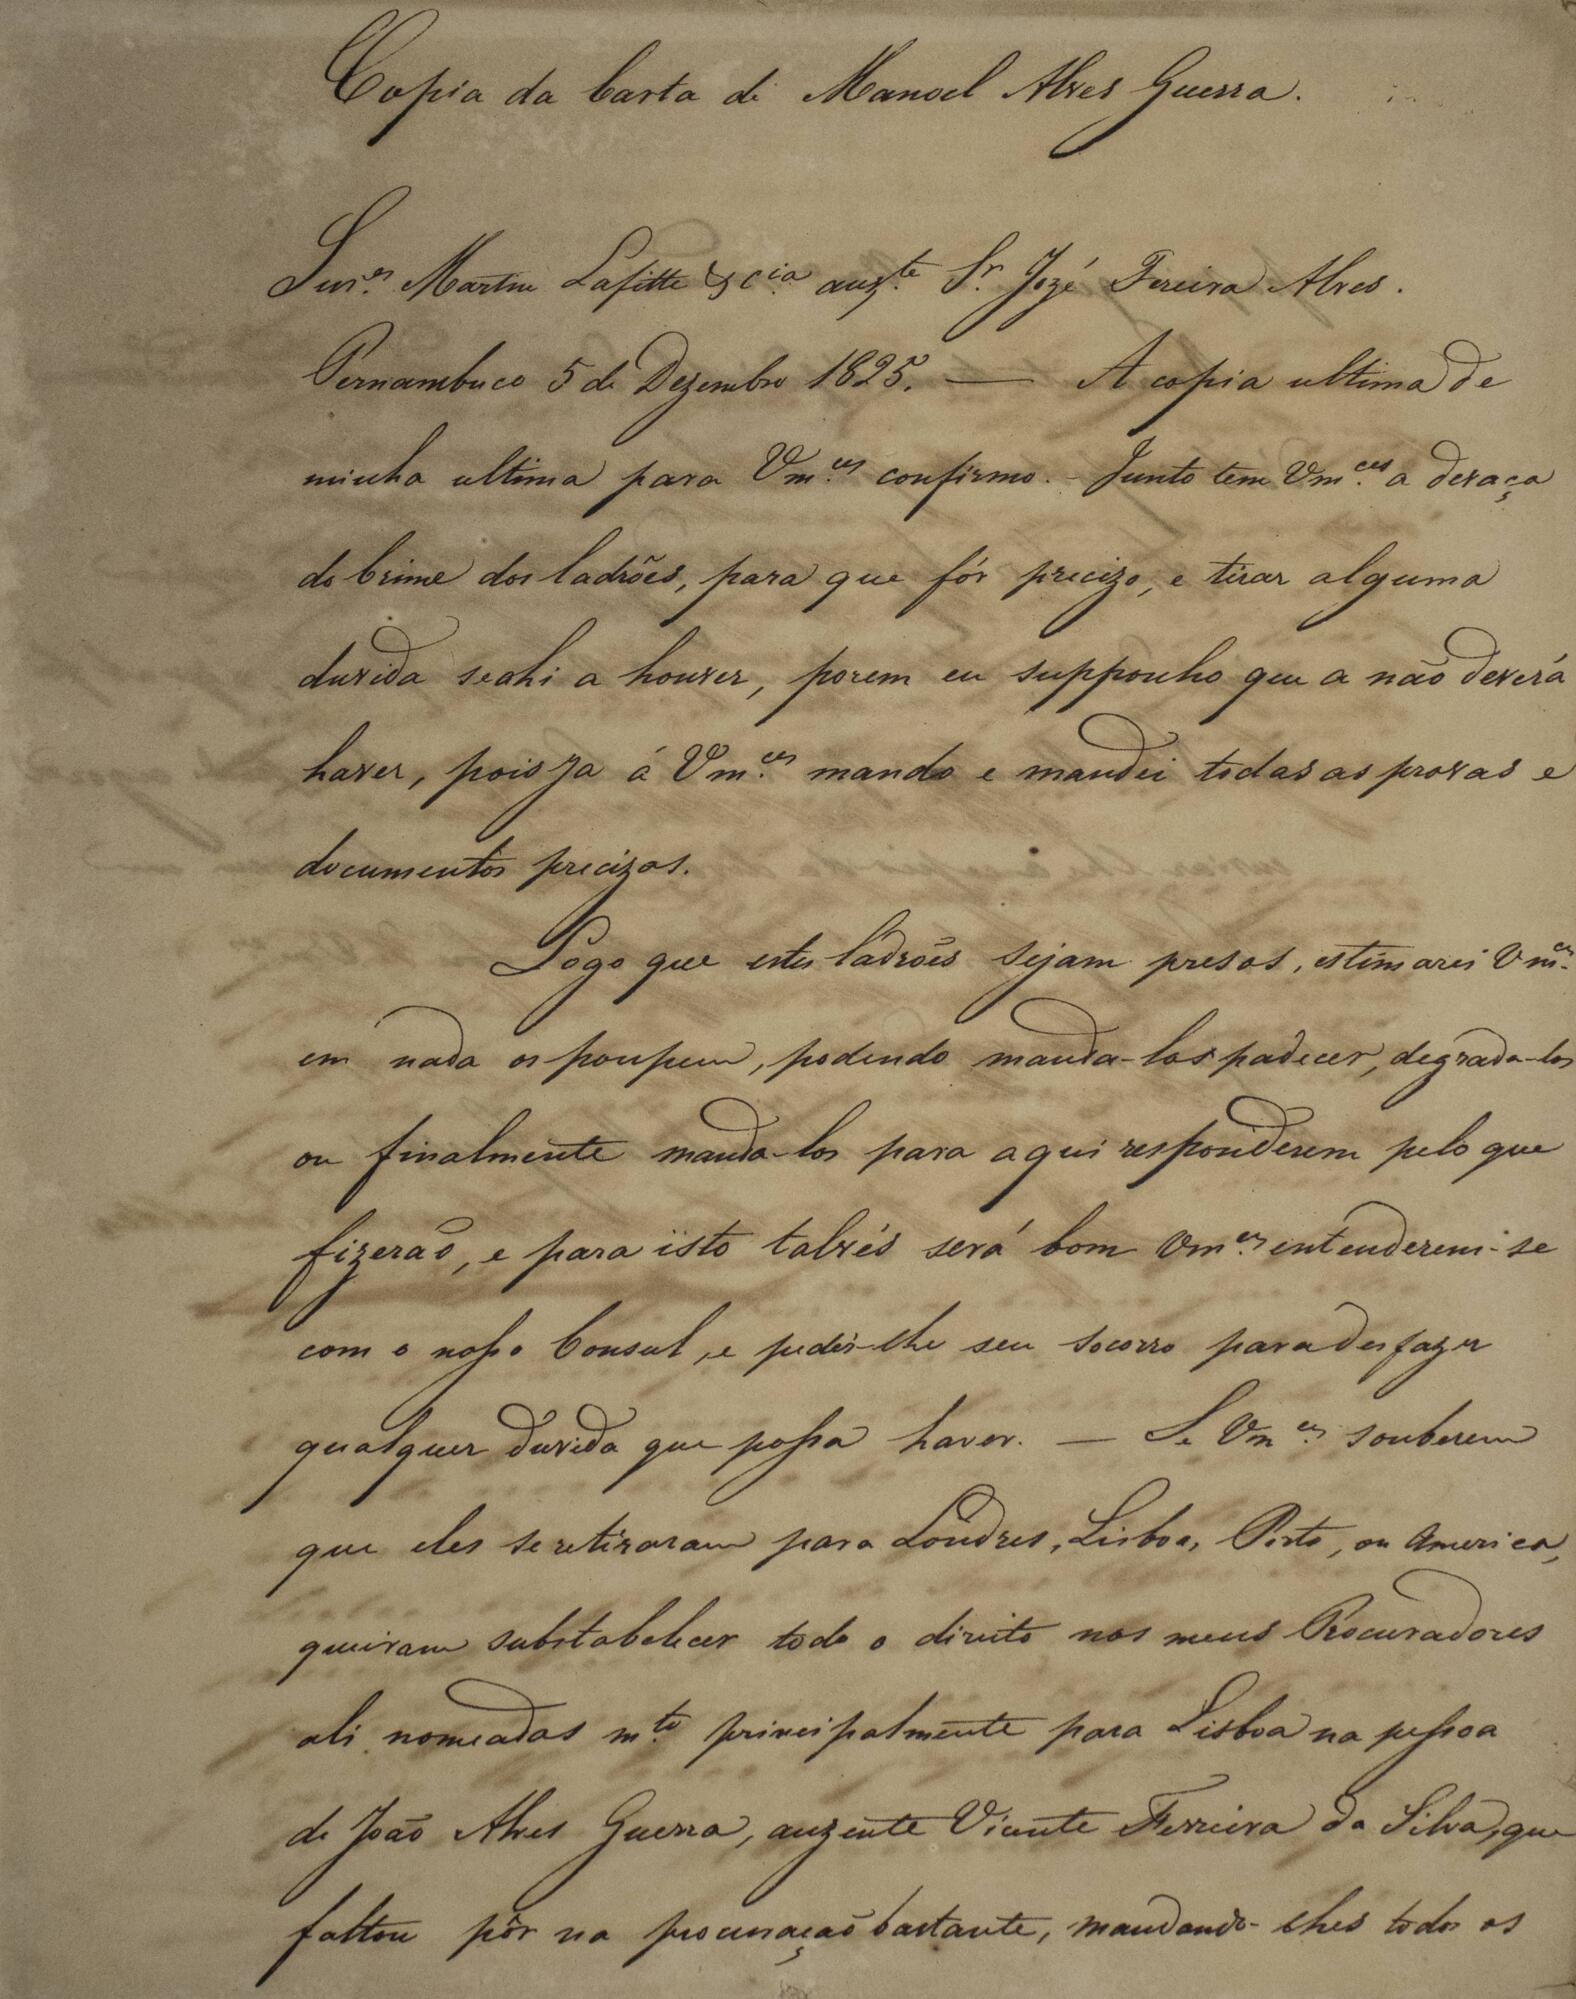 Copia da Carta de Manoel Alves Guerra.
Snr.es Martin Lafitte & Cia. auz.te Sr. José Fereira Alves.
Pernambuco 5 de Dezembro 1825. — A copia ultima de
minha ultima para Vm.ces confirmo. - Junto tem Vm.ces a devaça
do Crime dos ladrões, para que fôr precizo, e tirar alguma
duvida se ahi a houver, porem eu supponho que a não deverá
haver, pois ja á Vm.ces mando e mandei todas as provas e
documentos precizos.
Logo que estes ladrões sejam presos, estimarei Vm.ces
em nada os poupem, podendo manda-los padecer, degrada-los
ou finalmente manda-los para aqui responderem pelo que
fizerão, e para isto talvés será bom Vm.ces entenderem-se
com o nosso Consul, e pedir-lhe seu socorro para desfazer
qualquer duvida que possa haver. — Se Vm.ces souberem
que eles se retiraram para Londres, Lisboa, Porto, ou America,
queiram substabelecer todo o direito nos meus Procuradores
ali nomeados m.to principalmente para Lisboa na pessoa
de João Alves Guerra, auzente Vicente Ferreira da Silva, que
faltou pôr na procuração bastante, mandando-lhes todos os